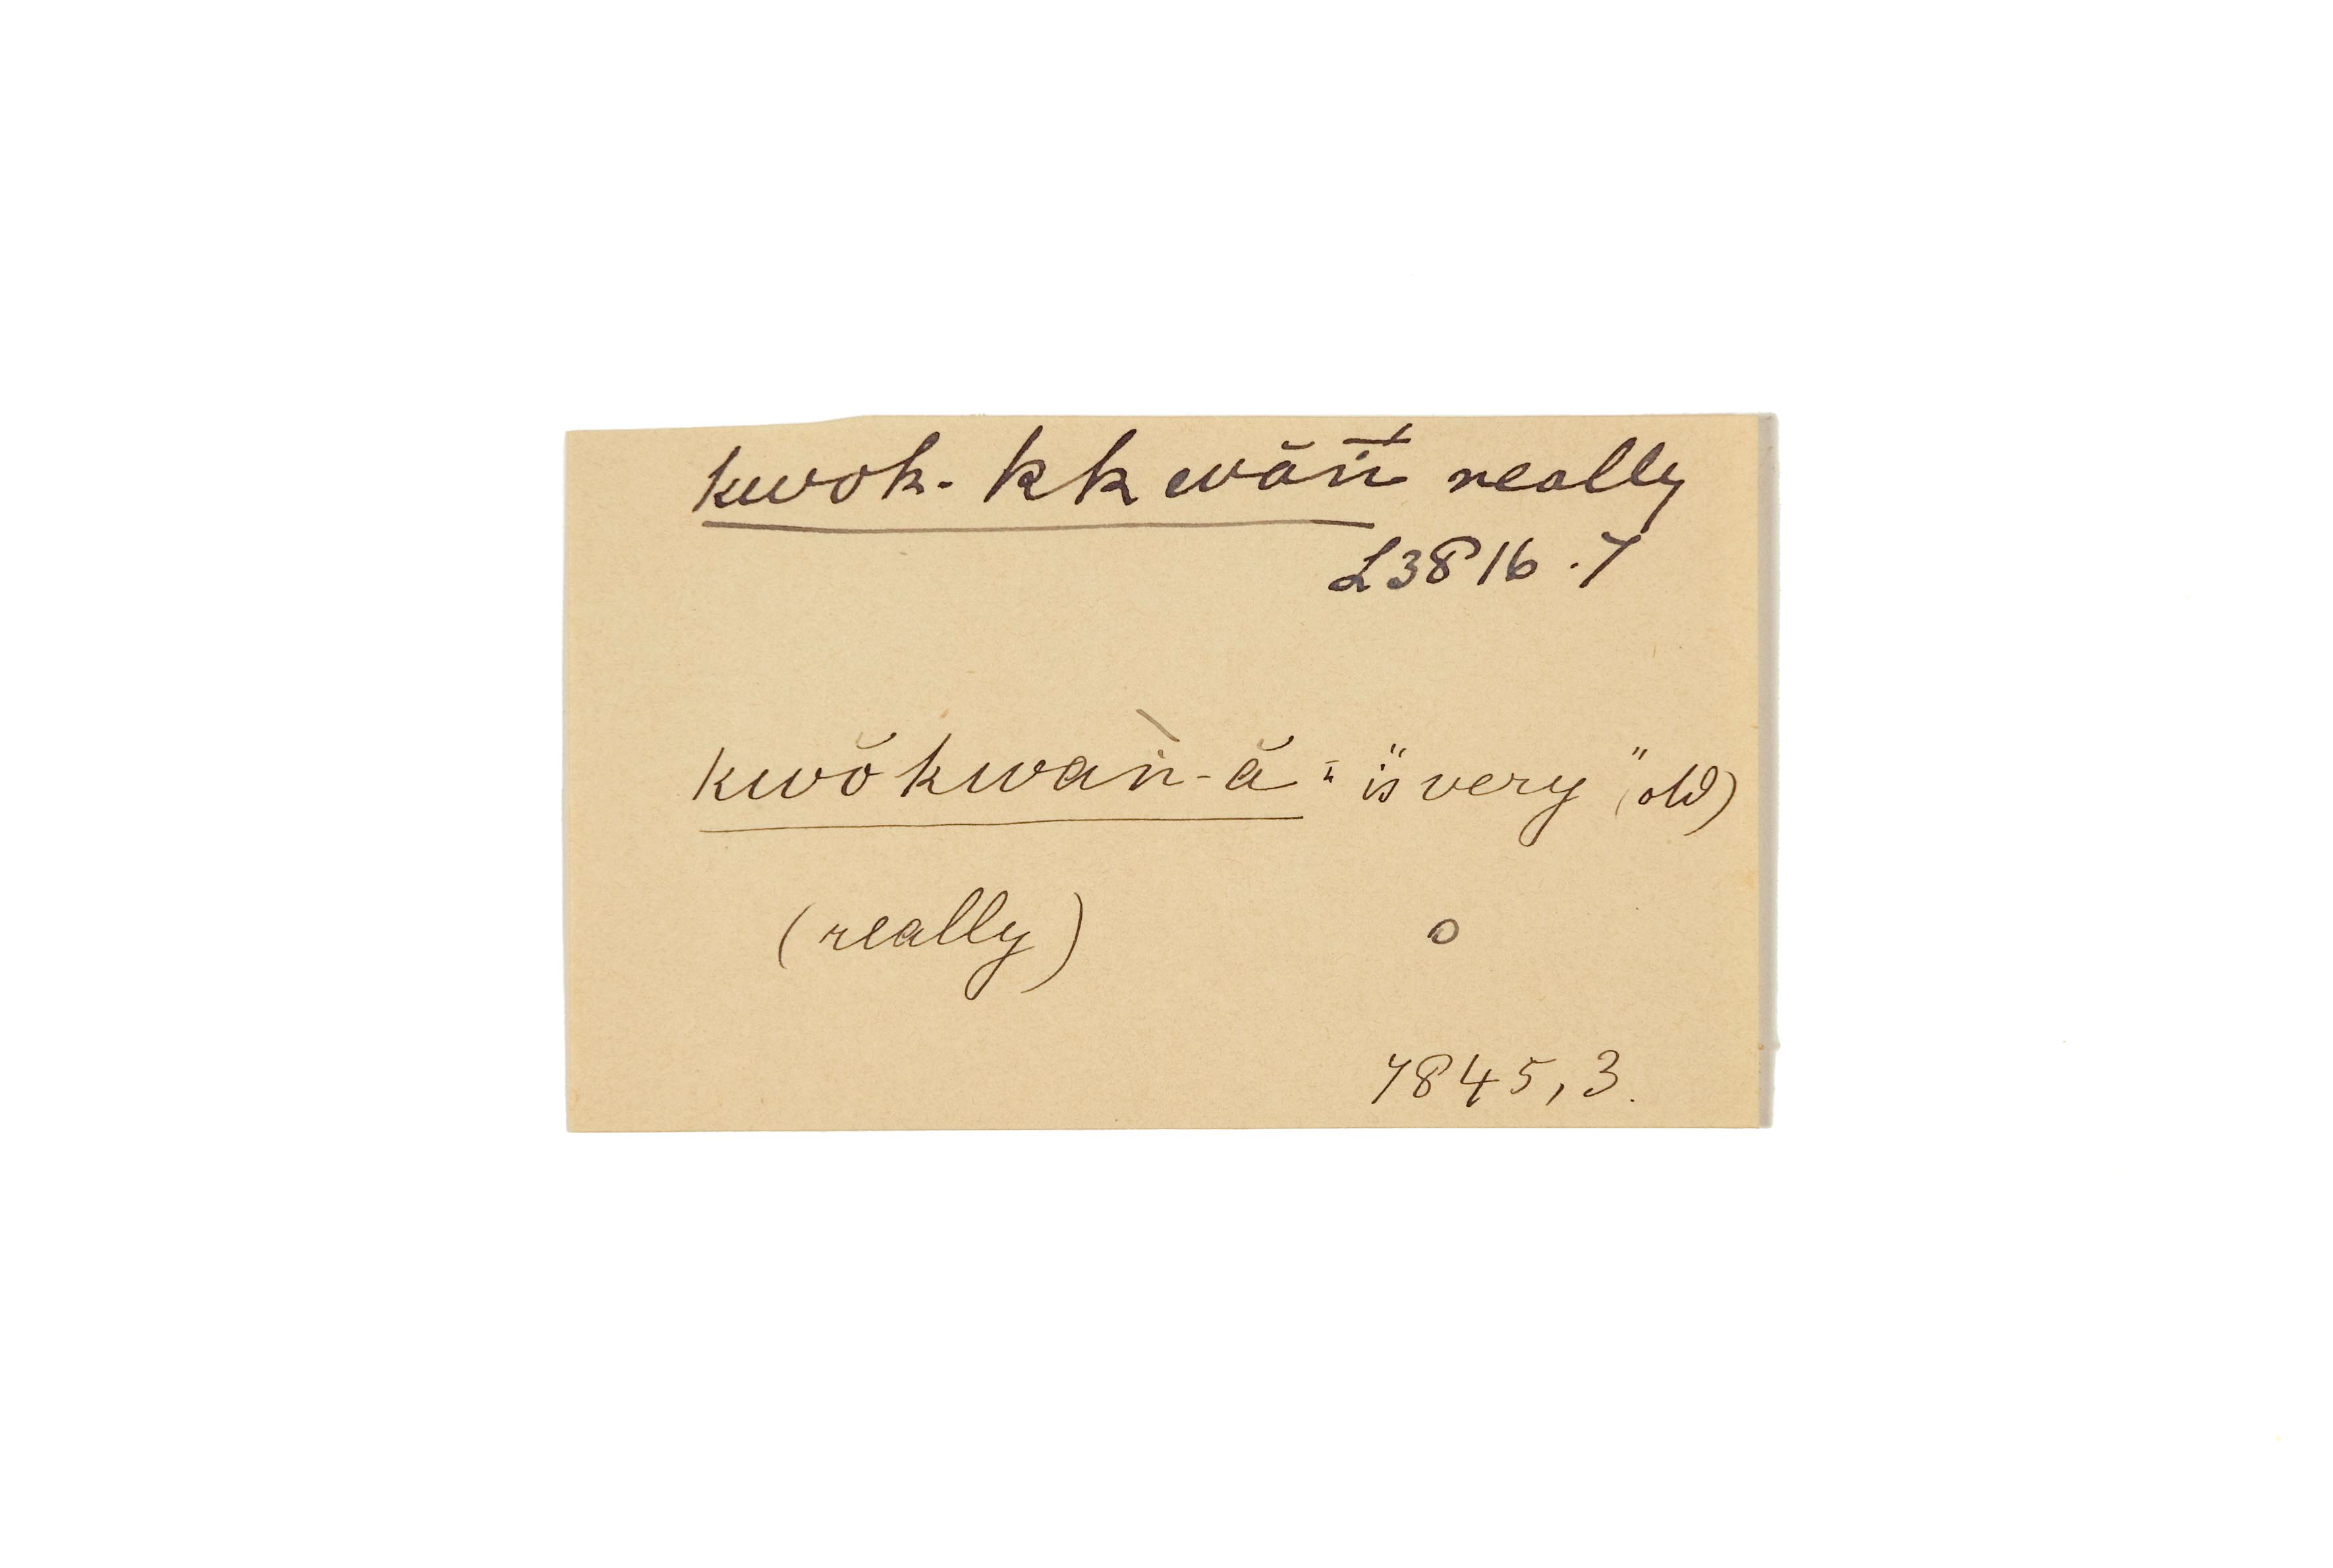 kwok-kkwăṅ̄ really
L3816.7
kwŏkwaṅ-ă = "is very" (old)
(really) o
7845,3.